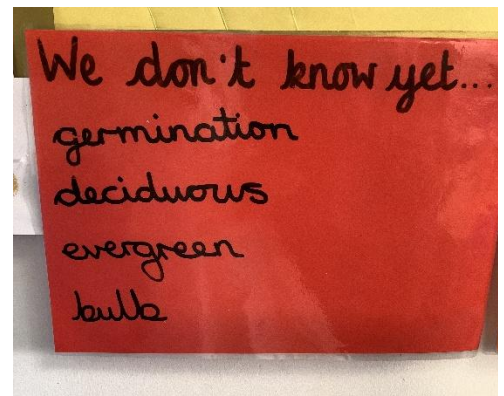 We don't know yet...
germination
deciduous
evergreen
bulb